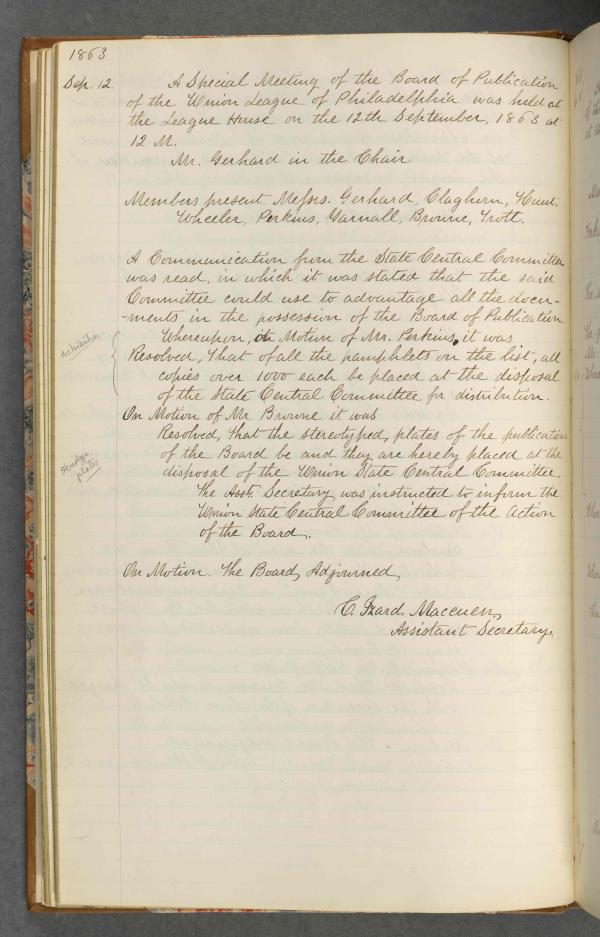 1863
Sep. 12.
A Special Meeting of the Board of Publication
of the Union League of Philadelphia was held at
the League House on the 12th. September, 1863 at
12 M.
Mr. Gerhard in the Chair
Members present. Messrs. Gerhard, Claghorn, Hunt,
Wheeler, Perkins, Yarnall, Browne, Trott.
A Communication from the State Central Committee
was read, in which it was stated that the said
Committee could use to advantage all the docu-
-ments in the possession of the Board of Publication.
Whereupon, on Motion of Mr. Perkins, it was
distribution
Resolved, That of all the pamphlets on the list, all
copies over 1000 each be placed at the disposal
of the State Central Committee for distribution.
On Motion of Mr. Browne it was
Resolved, That the stereotyped plates of the publications
of the Board be and they are hereby placed at the
plates
disposal of the Union State Central Committee
The Asst. Secretary was instructed to inform the
Union State Central Committee of the action
of the Board.
On Motion. The Board Adjourned,
C. Izard Maceuen,
Assistant Secretary.